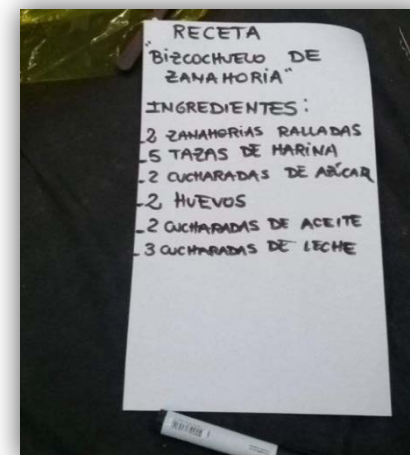 RECETA
"BIZCOCHUELO DE
ZANAHORIA"
INGREDIENTES:
_2 ZANAHORIAS RALLADAS
_5 TAZAS DE HARINA
_2 CUCHARADAS DE AZÚCAR
_2 HUEVOS
_2 CUCHARADAS DE ACEITE
_3 CUCHARADAS DE LECHE